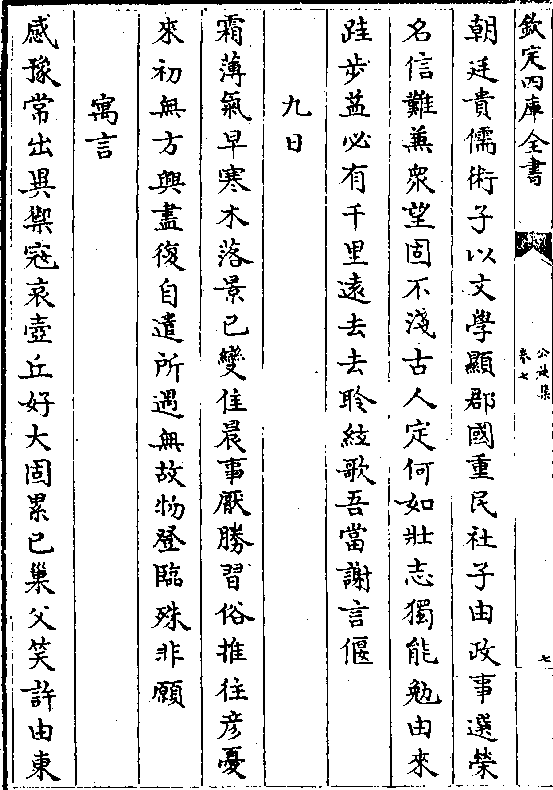 欽定四庫全書
公是集
卷七
七
朝廷貴儒術子以文學顯郡國重民社子由政事選榮
名信難兼衆望固不淺古人定何如壯志獨能勉由來
跬步益必有千里逺去去聆絃歌吾當謝言偃
九日
霜薄氣早寒木落景已變佳晨事厭勝習俗推徃彦憂
來初無方興盡復自遣所遇無故物登臨殊非願
寓言
感豫常出異禦寇哀壺丘好大固累已巢父笑許由東